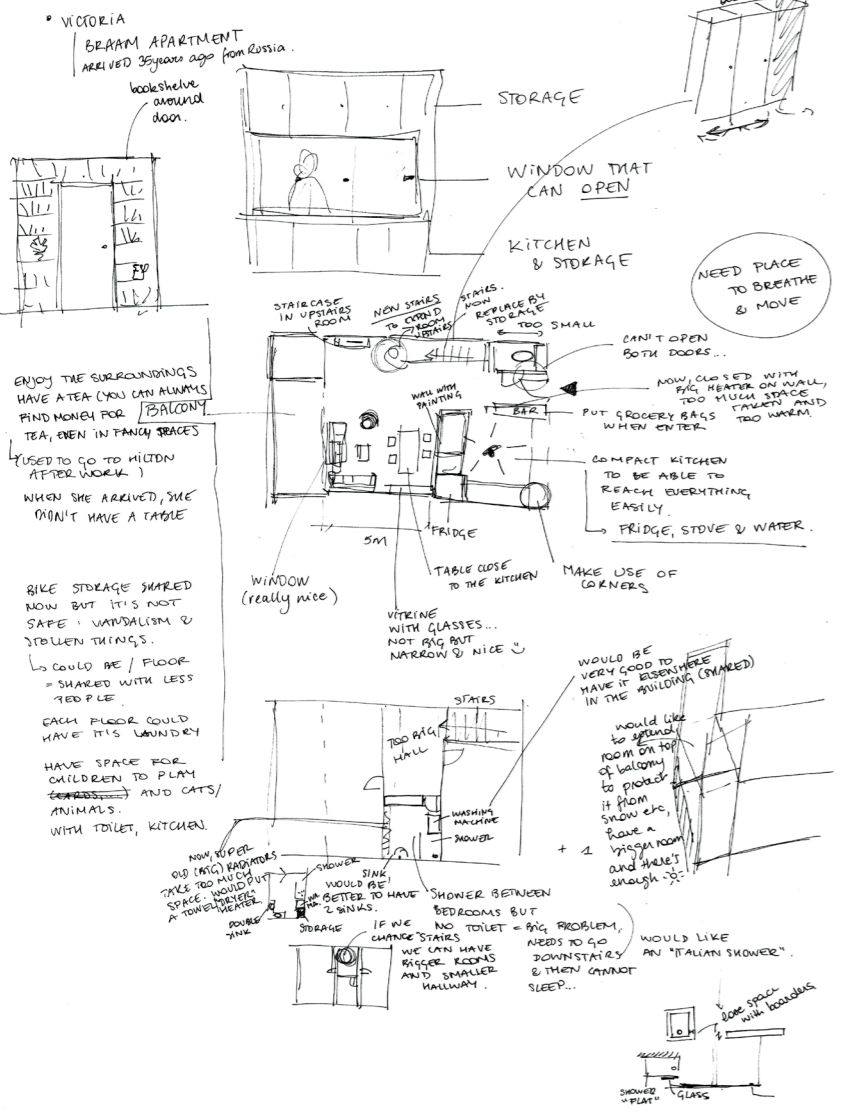 • VICTORIA
BRAAM APARTMENT
ARRIVED 35years ago from Russia.
bookshelve
around
door.
STORAGE
WINDOW THAT
CAN OPEN
KITCHEN
& STORAGE
NEED PLACE
TO BREATHE
& MOVE
STAIRCASE
IN UPSTAIRS
ROOM
NEW STAIRS
TO EXPEND
ROOM
UPSTAIRS
STAIRS.
NOW
REPLACE BY
STORAGE
TOO SMALL
CAN'T OPEN
BOTH DOORS...
NOW, CLOSED WITH
BIG HEATER ON WALL,
TOO MUCH SPACE
TAKEN AND
TOO WARM.
WALL WITH
PAINTING
BAR
PUT GROCERY BAGS
WHEN ENTER
COMPACT KITCHEN
TO BE ABLE TO
REACH EVERYTHING
EASILY.
FRIDGE, STOVE & WATER.
ENJOY THE SURROUNDINGS
HAVE A TEA (YOU CAN ALWAYS
FIND MONEY FOR
TEA, EVEN IN FANCY SPACES
BALCONY
(USED TO GO TO HILTON
AFTER WORK)
WHEN SHE ARRIVED, SHE
DIDN'T HAVE A TABLE
5M
FRIDGE
TABLE CLOSE
TO THE KITCHEN
MAKE USE OF
CORNERS
WINDOW
(really nice)
VITRINE
WITH GLASSES...
NOT BIG BUT
NARROW & NICE
BIKE STORAGE SHARED
NOW BUT IT'S NOT
SAFE: VANDALISM &
STOLLEN THINGS.
COULD BE / FLOOR
= SHARED WITH LESS
PEOPLE
EACH FLOOR COULD
HAVE IT'S LAUNDRY
HAVE SPACE FOR
CHILDREN TO PLAY
(CARDS,...) AND CATS/
ANIMALS.
WITH TOILET, KITCHEN.
WOULD BE
VERY GOOD TO
HAVE IT ELSEWHERE
IN THE BUILDING (SHARED)
STAIRS
TOO BIG
HALL
WASHING
MACHINE
SHOWER
would like
to extend
room on top
of balcony
to protect
it from
snow etc,
have a
bigger room
and there's
enough
+ 1
NOW, SUPER
OLD (BIG) RADIATORS
TAKE TOO MUCH
SPACE. WOULD PUT
A TOWEL "DRYER"
HEATER
SHOWER
DOUBLE
SINK
STORAGE
SINK
WOULD BE
BETTER TO HAVE
2 SINKS.
SHOWER BETWEEN
BEDROOMS BUT
NO TOILET = BIG PROBLEM,
NEEDS TO GO
DOWNSTAIRS
& THEN CANNOT
SLEEP...
IF WE
CHANGE STAIRS
WE CAN HAVE
BIGGER ROOMS
AND SMALLER
HALLWAY.
WOULD LIKE
AN "ITALIAN SHOWER".
lose space
with boarders
SHOWER
"FLAT"
GLASS